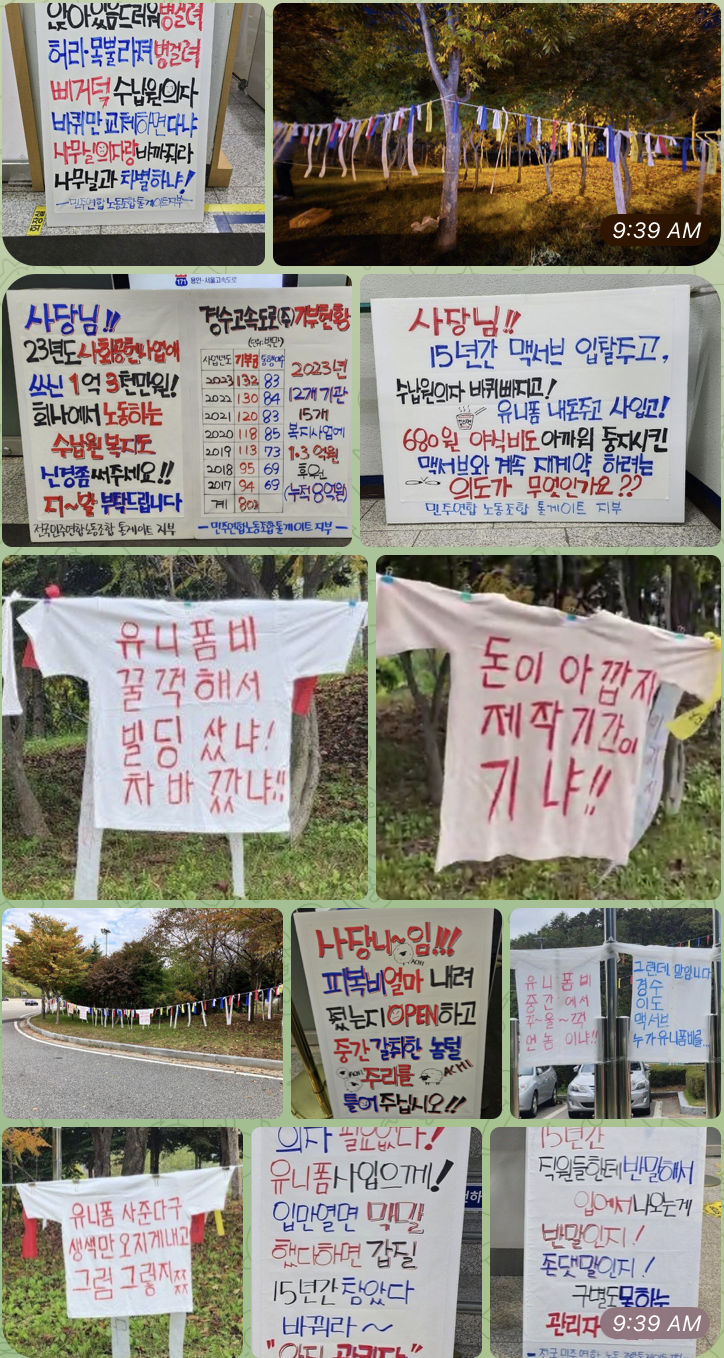 앉아있음드러워병걸려
허리·목뿔라져병걸려
삐거덕 수납원의자
바퀴만교체하면다냐
사무실의자랑바까줘라
사무실과 차별하냐!
민주연합노동조합톨게이트지부
9:39 AM
171 용인-서울고속도로
사당님!!
23년도사회공헌사업에
쓰신 1억 3천만원!
회사에서 노동하는
수납원 복지도
신경좀써주세요!!
지~발 부탁드립니다
전국민주연합노동조합 톨게이트 지부
경수고속도로(주)기부현황
(단위:백만)
사업년도 기부금
2023 132 83
2022 130 84
2021 120 83
2020 118 85
2019 113 73
2018 95 69
2017 94 69
계 802
2023년
12개 기관
15개
복지사업에
1.3 억원
후원
(누적 8억원)
민주연합노동조합톨게이트 지부
사당님!!
15년간 맥서브 입찰주고,
수납원의자 바퀴빠지고!
유니폼 내돈주고 사입고!
680원 야식비도 아까워 중지시킨
맥서브와 계속 재계약 하려는
의도가 무엇인가요??
민주연합 노동조합 톨게이트 지부
유니폼비
꿀꺽해서
빌딩 샀냐!
차바꿨냐!!
돈이 아깝지
제작기간이
기냐!!
사당니~임!!!
피복비얼마 내려
줬는지 OPEN하고
중간갈취한 놈털
주리를
틀어주십시오!!
유니폼비
중간에서
주~울~꺽
언놈이냐!!
그런데 말입니다
경수
이도
맥서브
누가유니폼비를...
유니폼 사준다구
생색만오지게내고
그럼 그렇지ㅉㅉ
의자 필요없다!
유니폼사입으께!
입만열면 막말
했다하면 갑질
15년간참았다
바꿔라~
관리자"
15년간
직원들한테반말해서
입에서나오는게
반말인지!
존댓말인지!
구별도못하는
관리자
9:39 AM